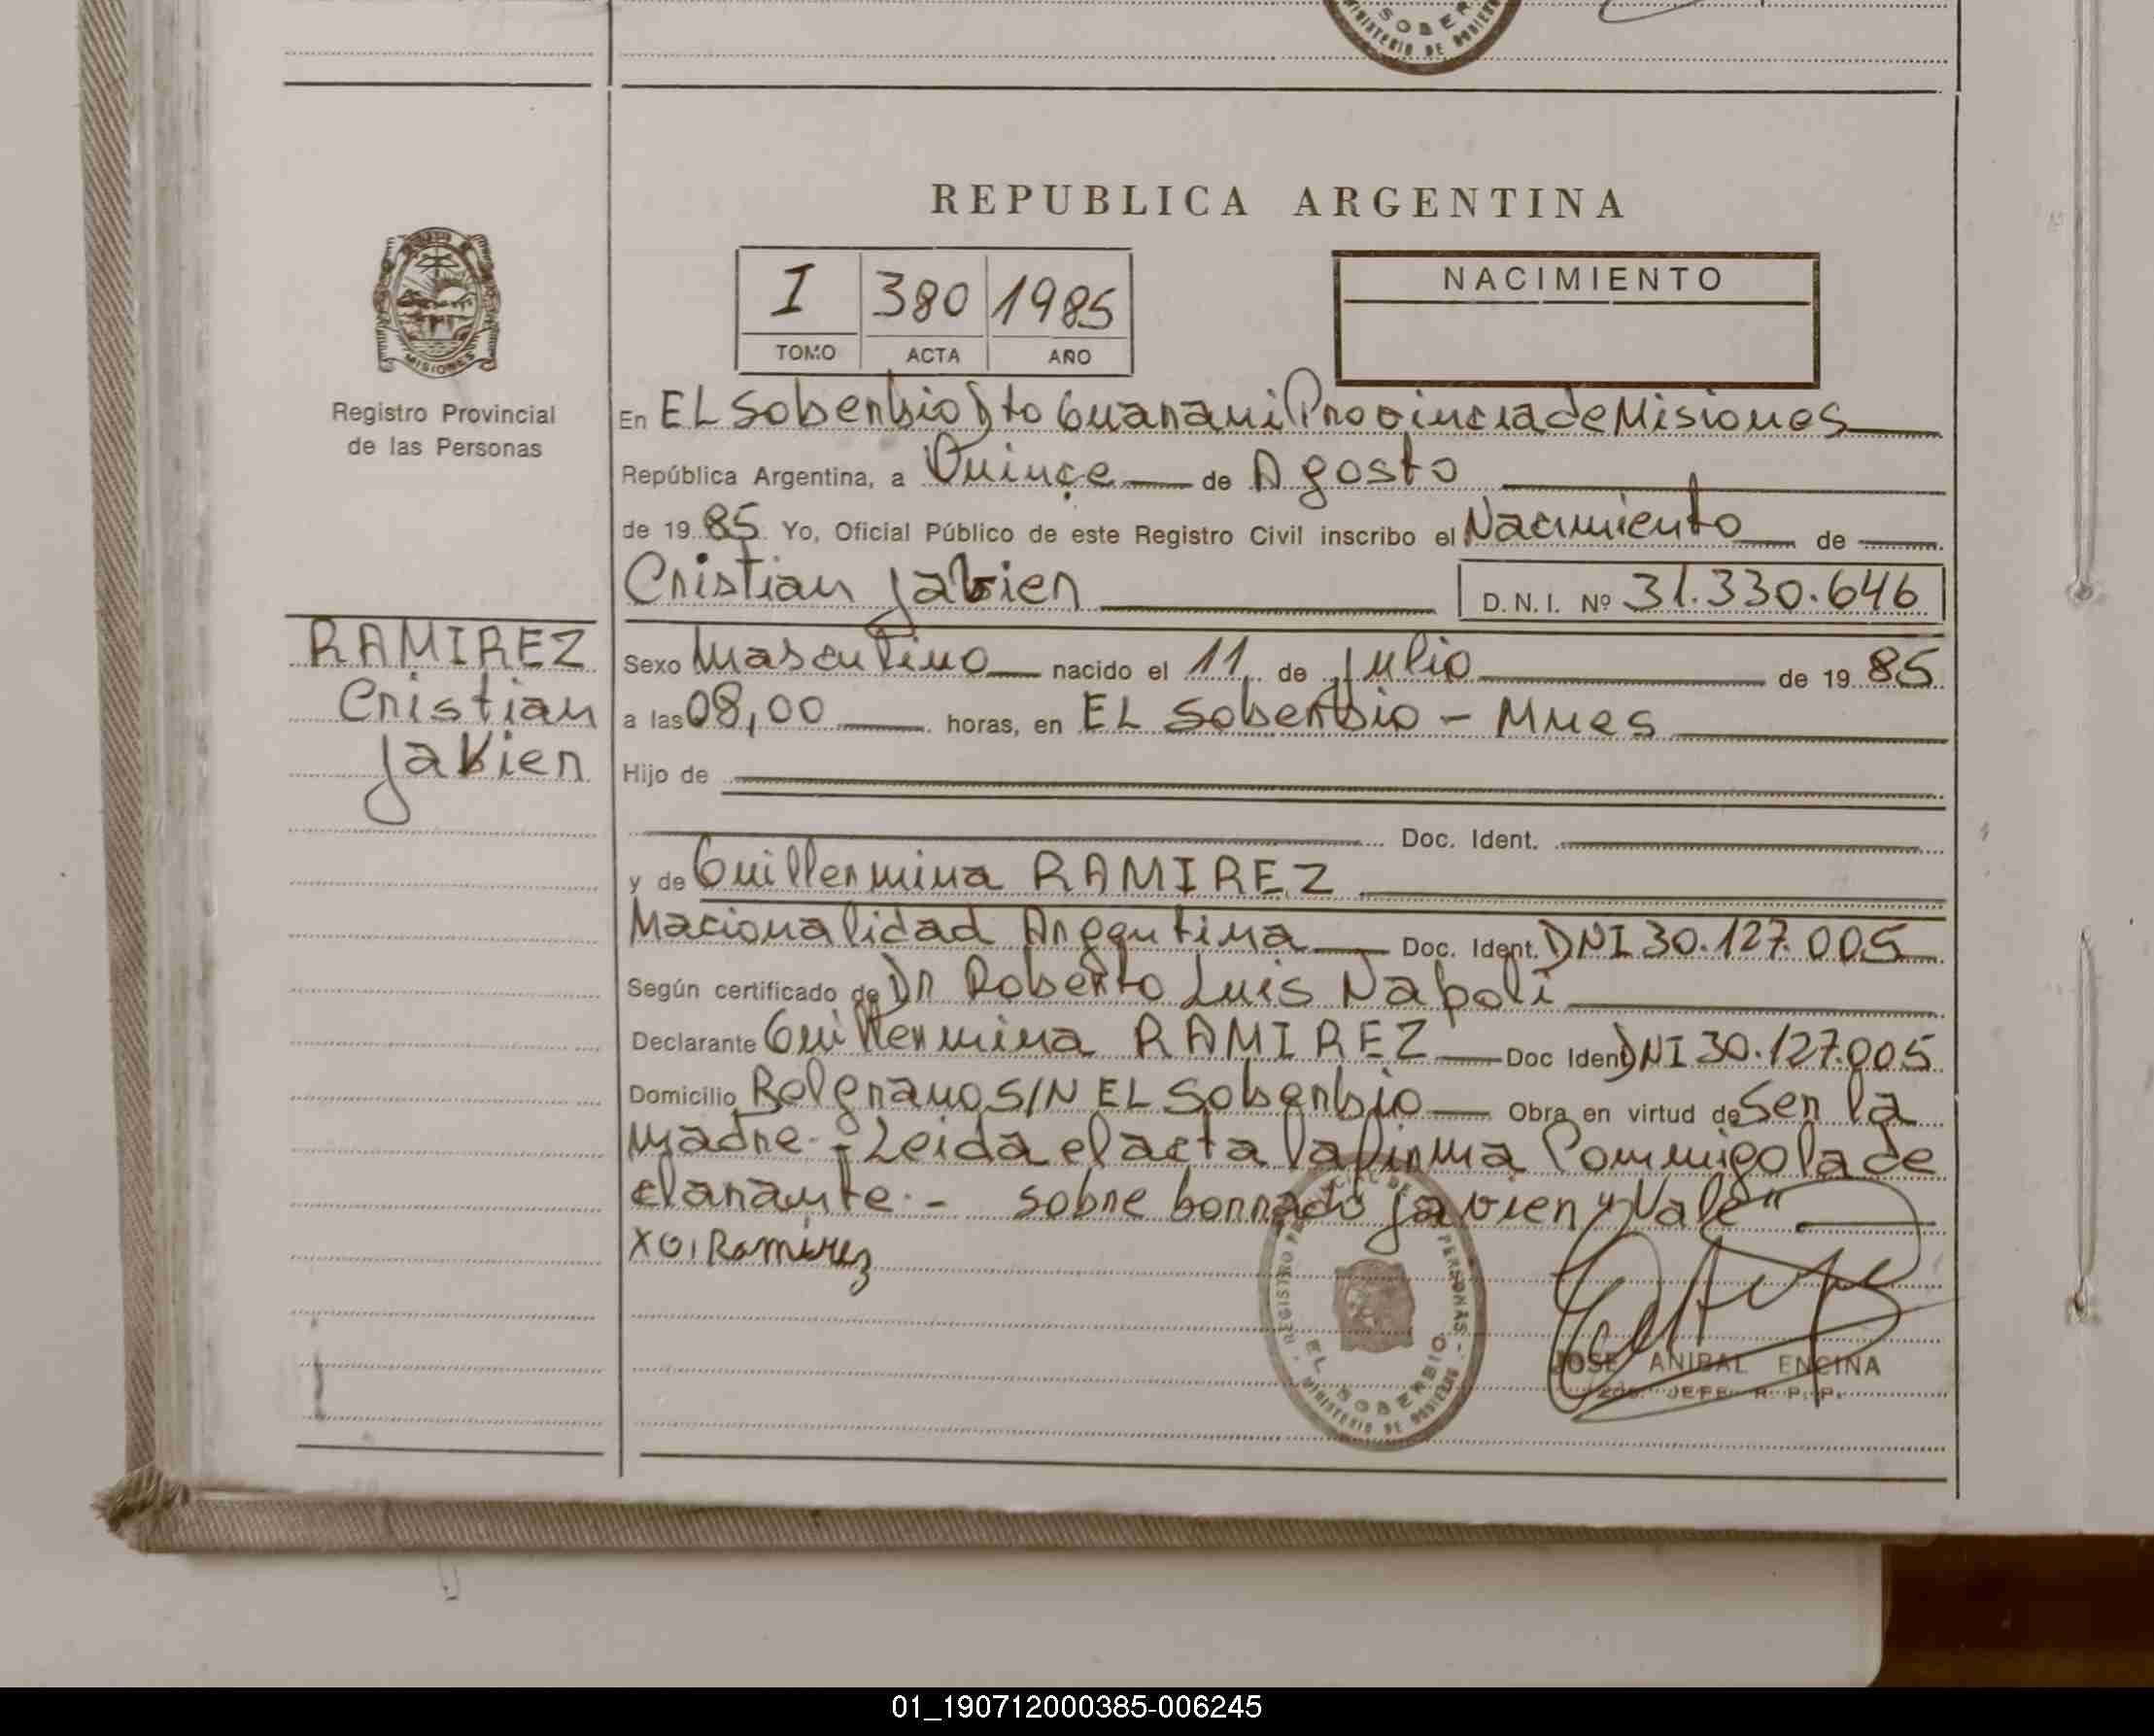 SOBER
MINISTERIO DE GOBIERNO
REPUBLICA ARGENTINA
MISIONES
Registro Provincial
de las Personas
I 380 1985
TOMO ACTA AÑO
NACIMIENTO
En EL Soberbio Dto Guarani Provincia de Misiones
República Argentina, a Quince de Agosto
de 19 85 Yo, Oficial Público de este Registro Civil inscribo el Nacimiento de
Cristian Javier D.N.I. Nº 31.330.646
RAMIREZ
Cristian
Javier
Sexo Masculino nacido el 11 de Julio de 19 85
a las 08,00 horas, en EL Soberbio - Mnes
Hijo de
Doc. Ident.
y de Guillermina RAMIREZ
Nacionalidad Argentina Doc. Ident. DNI 30.127.005
Según certificado de Dr Roberto Luis Napoli
Declarante Guillermina RAMIREZ Doc Ident DNI 30.127.005
Domicilio Belgrano S/N EL Soberbio Obra en virtud de Ser la
madre.- Leida el acta la firma Conmigo la de
clarante.- sobre borrado Javier "Vale"
X G, Ramirez
REGISTRO PROVINCIAL DE LAS PERSONAS - EL SOBERBIO
MINISTERIO DE GOBIERNO
JOSE ANIBAL ENCINA
JEFE R. P. P.
01_190712000385-006245